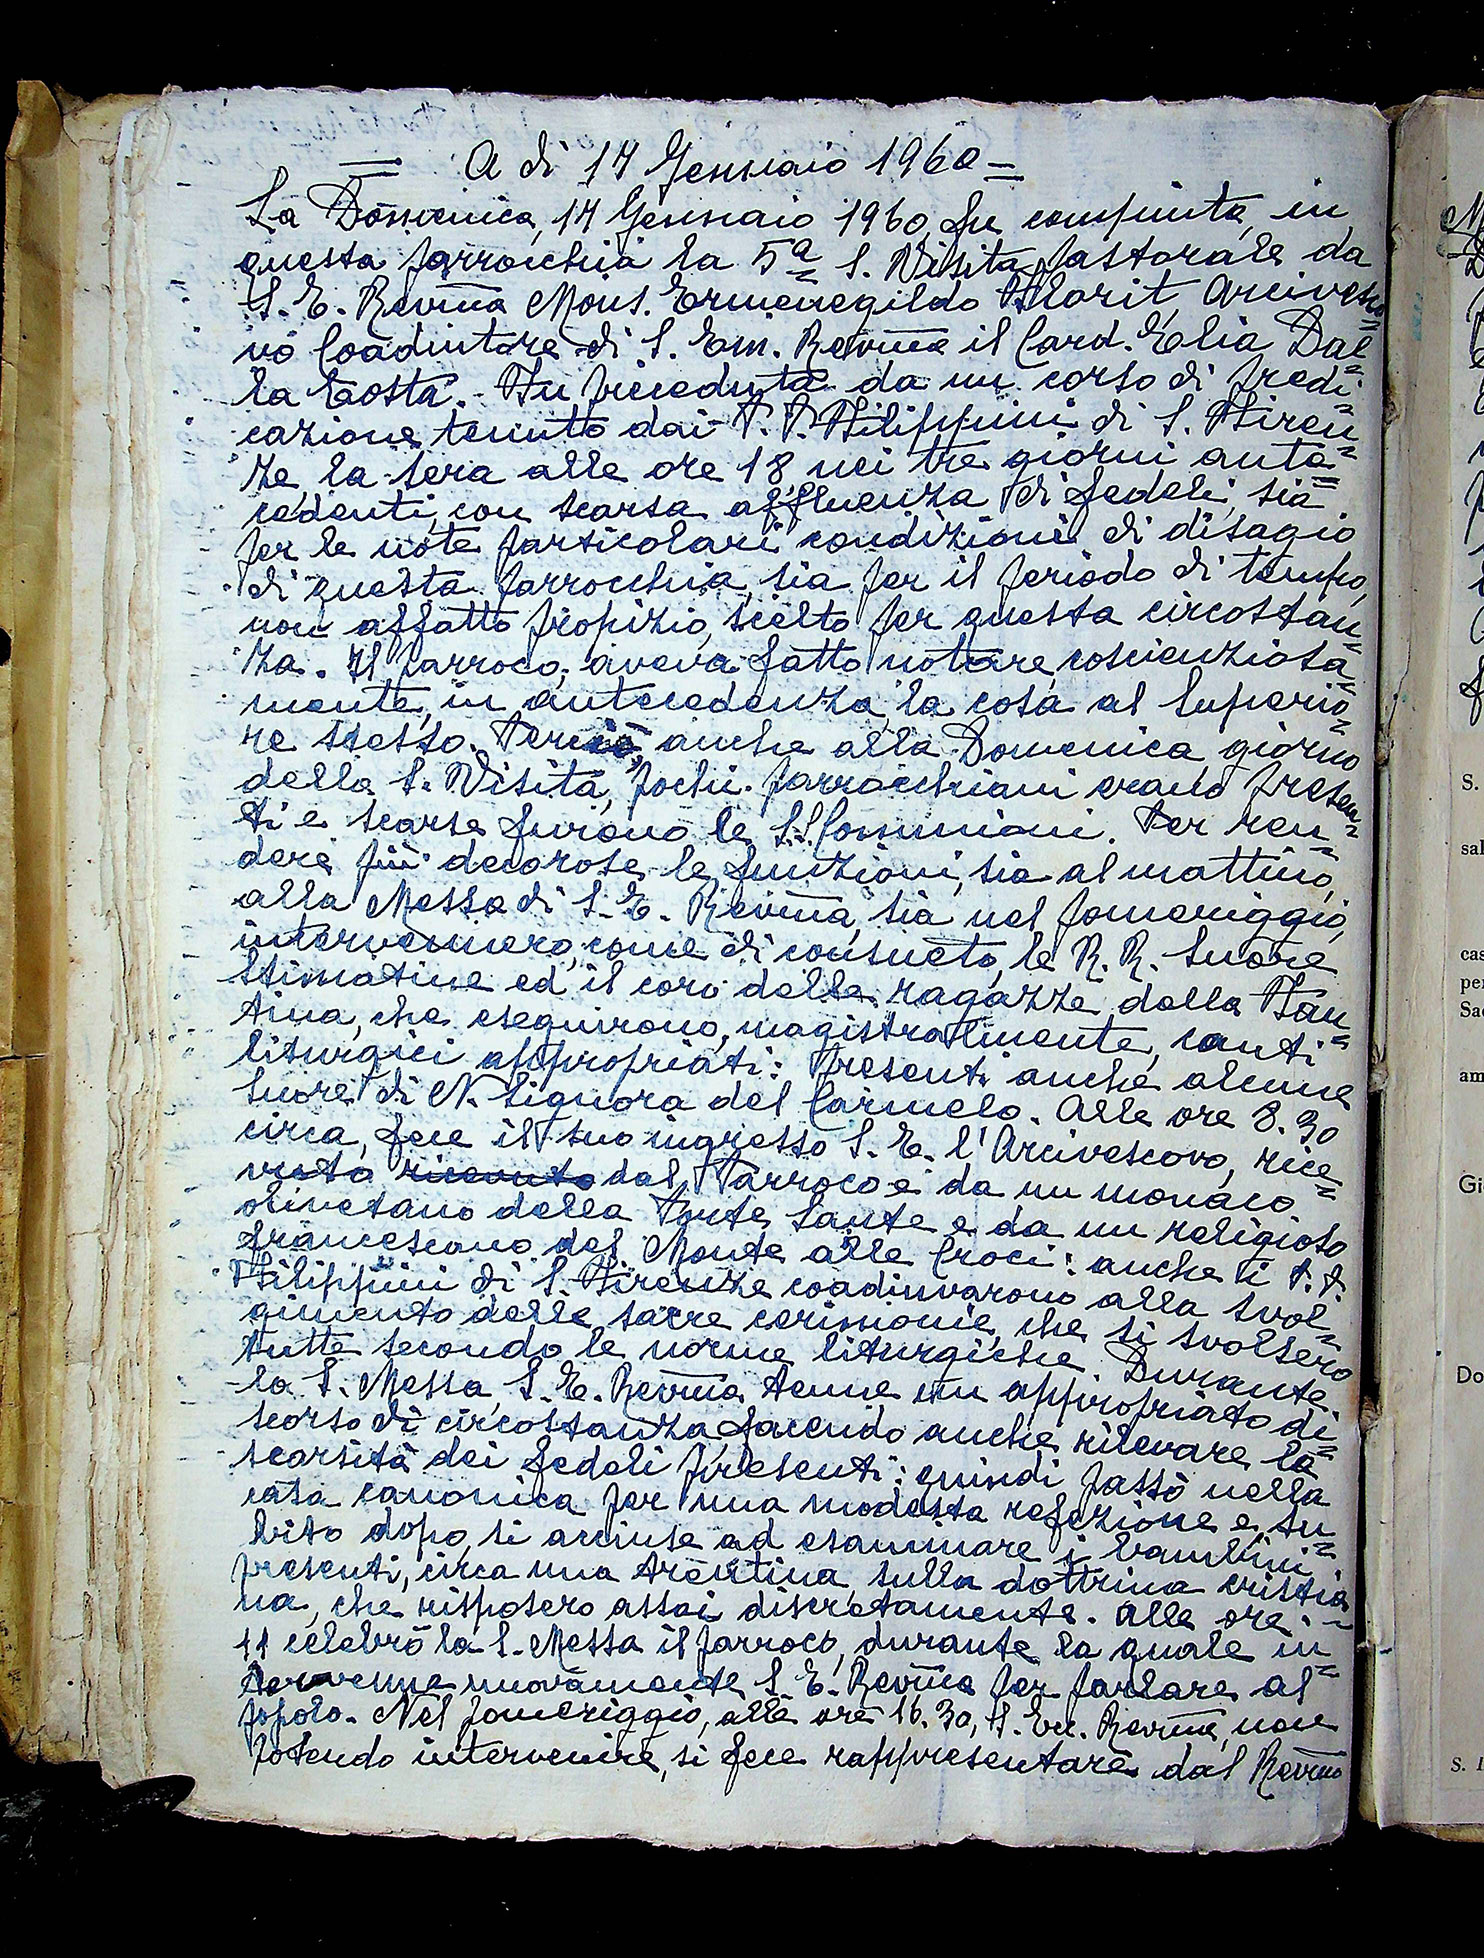 = A di 17 Gennaio 1960 =
La Domenica, 17 Gennaio 1960, fu compiuta, in
questa parrocchia la 5ª S. Visita Pastorale da
S. E. Rev̄ma Mons. Ermenegildo Florit, Arcivesco=
vo Coadiutore di S. Em. Rev̄ma il Card. Elia Dal=
la Costa. Fu preceduta da un corso di predi=
cazione tenuto dai P. P. Filippini di S. Firen=
ze, la sera alle ore 18, nei tre giorni ante=
cedenti, con scarsa affluenza di fedeli, sia
per le note particolari condizioni di disagio
di questa parrocchia, sia per il periodo di tempo,
non affatto propizio, scelto per questa circostan=
za. Il parroco, aveva fatto notare, coscienziosa=
mente, in antecedenza, la cosa al Superio=
re stesso. Perciò, anche alla Domenica, giorno
della S. Visita, pochi parrocchiani erano presen=
ti e scarse furono le S.S. Comunioni. Per ren=
dere più decorose le funzioni, sia al mattino,
alla Messa di S. E. Rev̄ma, sia nel pomeriggio,
intervennero, come di consueto, le R. R. Suore
Stimatine ed il coro delle ragazze della Fan=
tina, che eseguirono, magistralmente, canti
liturgici appropriati: Presenti anche alcune
Suore di N. Signora del Carmelo. Alle ore 8.30
circa, fece il suo ingresso S. E. l'Arcivescovo, rice=
vuto ricevuto dal Parroco e da un monaco
olivetano delle Porte Sante e da un religioso
francescano del Monte alle Croci: anche i P. P.
Filippini di S. Firenze coadiuvarono alla svol=
gimento delle sacre cerimonie, che si svolsero
tutte secondo le norme liturgiche. Durante
la S. Messa, S. E. Rev̄ma tenne un appropriato di=
scorso di circostanza, facendo anche rilevare la
scarsità dei fedeli presenti: quindi passò nella
casa canonica per una modesta refezione e, su=
bito dopo, si accinse ad esaminare i bambini
presenti, circa una trentina, sulla dottrina cristia=
na, che risposero assai discretamente. Alle ore
11 celebrò la S. Messa il parroco, durante la quale in=
tervenne nuovamente S. E. Rev̄ma per parlare al
popolo. Nel pomeriggio, alle ore 16.30, S. Ecc. Rev̄ma, non
potendo intervenire, si fece rappresentare dal Rev̄mo
S.
sal
cas
per
Sac
am
Gi
Do
S. I